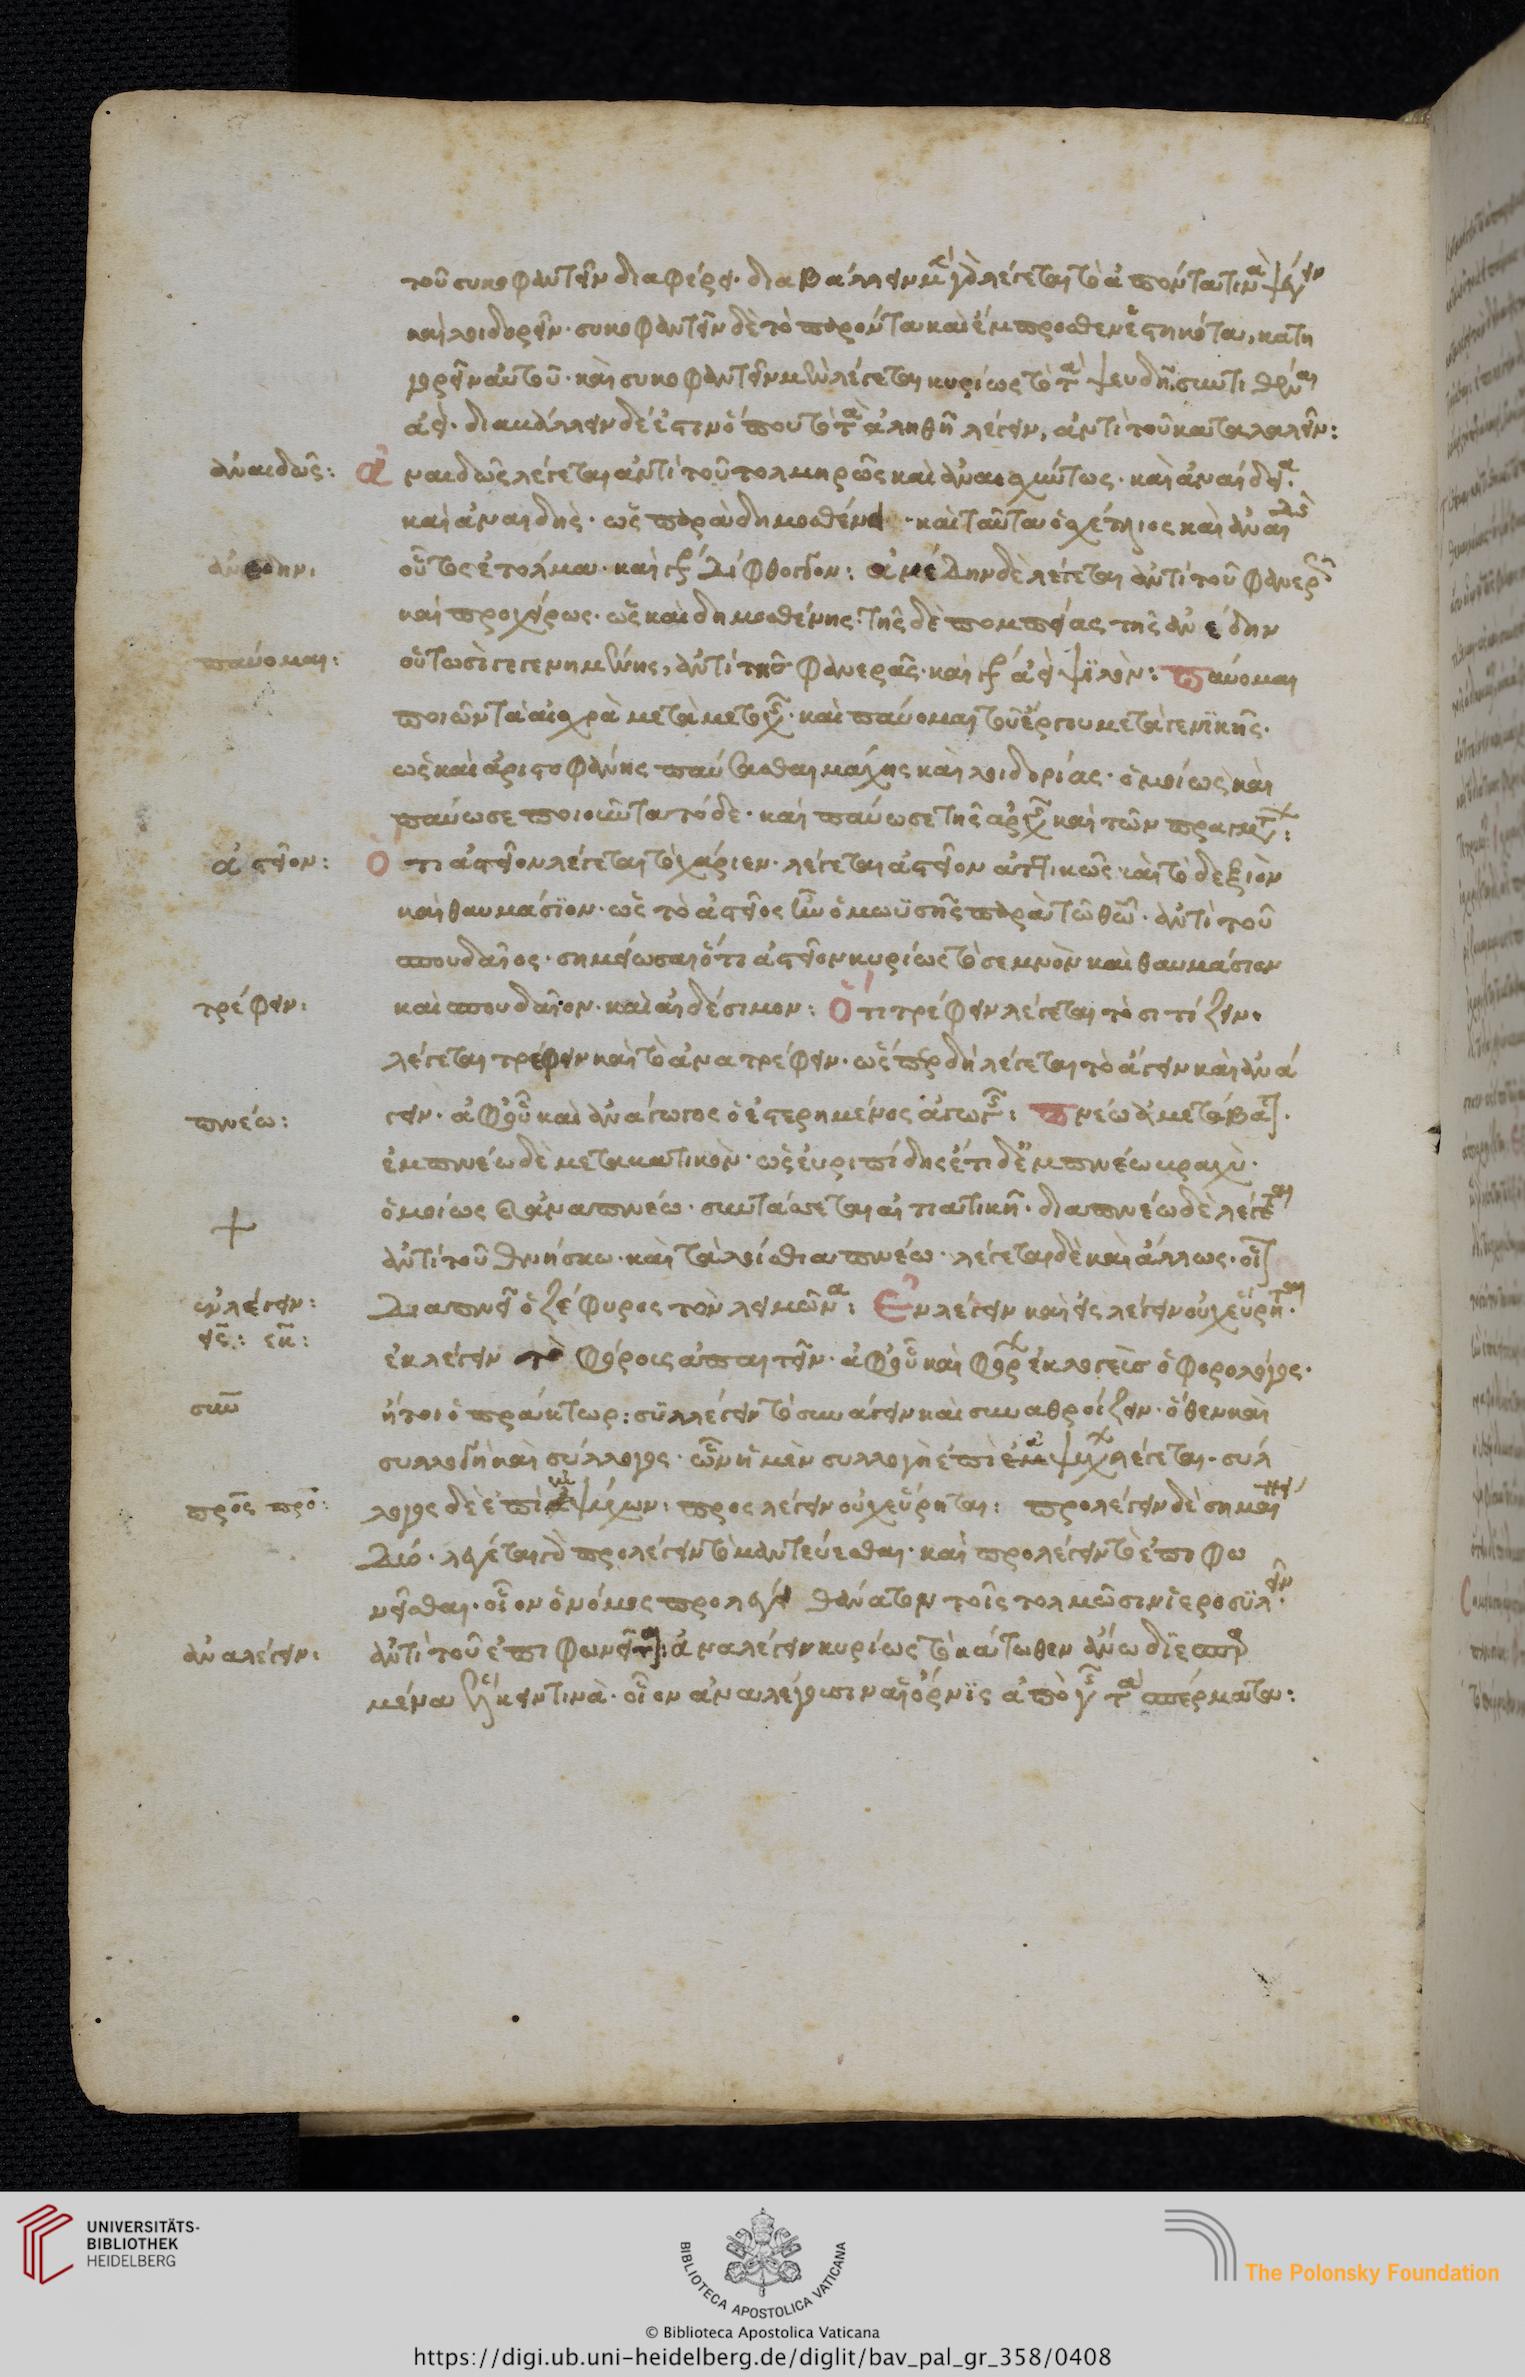 τοῦ συκοφαντεῖν διαφέρει· διαβάλλειν μὲν γὰρ λέγεται τὸ ἀπόντα τινὰ ψέγειν
καὶ λοιδορεῖν· συκοφαντεῖν δὲ τὸ παρόντα καὶ ἔμπροσθεν ἑστηκότα, κατη
γορεῖν αὐτοῦ· καὶ συκοφαντεῖν μὲν λέγεται κυρίως τὸ τὰ ψευδῆ
ἀεί· διαβάλλειν δέ ἐστιν ὅπου τὸ τὰ ἀληθῆ λέγειν, ἀντὶ τοῦ καταλαλεῖν:
ἀναιδῶς: ἀναιδῶς λέγεται ἀντὶ τοῦ τολμηρῶς καὶ ἀναισχύντως· καὶ ἀναίδεια·
καὶ ἀναιδής· ὡς παρὰ δημοσθένει· καὶ ταῦτα ὁ σχέτλιος καὶ ἀναιδὴς
ἀναίδην: οὗτος ἐτόλμα· καὶ δίφθογγον: ἀνέδην δὲ λέγεται ἀντὶ τοῦ φανερῶς
καὶ προχείρως· ὡς καὶ δημοσθένης· τῆς δὲ πομπείας τῆς ἀνέδην
παύομαι: οὑτωσὶ γεγενημένης, ἀντὶ τῆς φανερᾶς· καὶ ψιλόν: παύομαι
ποιῶν τὰ αἰσχρὰ μετὰ μετοχῆς· καὶ παύομαι τοῦ ἔργου μετὰ γενικῆς·
ὡς καὶ ἀριστοφάνης παύσασθαι μάχης καὶ λοιδορίας· ὁμοίως καὶ
παύω σε ποιοῦντα τόδε· καὶ παύω σε τῆς ἀρχῆς καὶ τῶν πραγμάτων:
ἀστεῖον: ὅτι ἀστεῖον λέγεται τὸ χάριεν· λέγεται ἀστεῖον ἀττικῶς καὶ τὸ δεξιὸν
καὶ θαυμάσιον· ὡς τὸ ἀστεῖος ἦν ὁ μωϋσῆς παρὰ τῷ θεῷ· ἀντὶ τοῦ
σπουδαῖος· σημείωσαι ὅτι ἀστεῖον κυρίως τὸ σεμνὸν καὶ θαυμάσιον
τρέφειν: καὶ σπουδαῖον· καὶ αἰδέσιμον: ὅτι τρέφειν λέγεται τὸ σιτίζειν·
λέγεται τρέφειν καὶ τὸ ἀνατρέφειν· ὥσπερ δὴ λέγεται τὸ ἄγειν καὶ ἀνά
πνέω: γειν· ἀφ' οὗ καὶ ἀνάγωγος ὁ ἐστερημένος ἀγωγῆς: πνέω ἀμετάβατον·
ἐμπνέω δὲ μεταβατικόν· ὡς εὐριπίδης ἔτι δ' ἐμπνέω βραχύ·
ὁμοίως καὶ ἀναπνέω· συντάσσεται αἰτιατικῇ· διαπνέω δὲ λέγεται
ἀντὶ τοῦ θνήσκω· καὶ τὰ λοίσθια πνέω· λέγεται δὲ καὶ ἄλλως· οἷον
ἐνλέγειν: διαπνεῖ ὁ ζέφυρος τὸν λειμῶνα: Ἐνλέγειν καὶ εἰσλέγειν οὐχ εὕρηται·
εἰς: ἐκ: ἐκλέγειν τὸ φόρους ἀπαιτεῖν· ἀφ' οὗ καὶ φόρων ἐκλογεὺς ὁ φορολόγος·
συν ἤτοι ὁ πράκτωρ: συλλέγειν τὸ συνάγειν καὶ συναθροίζειν· ὅθεν καὶ
συλλογὴ καὶ σύλλογος· ὧν ἡ μὲν συλλογὴ ἐπὶ ἀψύχων λέγεται· σύλ
πρὸς προ: λογος δὲ ἐπὶ ἐμψύχων: προσλέγειν οὐχ εὕρηται: προλέγειν δὲ σημαίνει
δύο· λέγεται γὰρ προλέγειν τὸ μαντεύεσθαι· καὶ προλέγειν τὸ ἐπιφω
νεῖσθαι· οἷον ὁ νόμος προλέγει θάνατον τοῖς τολμῶσιν ἱεροσυλεῖν·
ἀναλέγειν: ἀντὶ τοῦ ἐπιφωνεῖται: ἀναλέγειν κυρίως τὸ κάτωθεν ἄνω διεσπαρ
μένα τινά· οἷον ἀναλέγουσιν αἱ ὄρνις ἀπὸ γῆς τὰ σπέρματα:
UNIVERSITÄTS-
BIBLIOTHEK
HEIDELBERG
BIBLIOTECA APOSTOLICA VATICANA
The Polonsky Foundation
© Biblioteca Apostolica Vaticana
https://digi.ub.uni-heidelberg.de/diglit/bav_pal_gr_358/0408